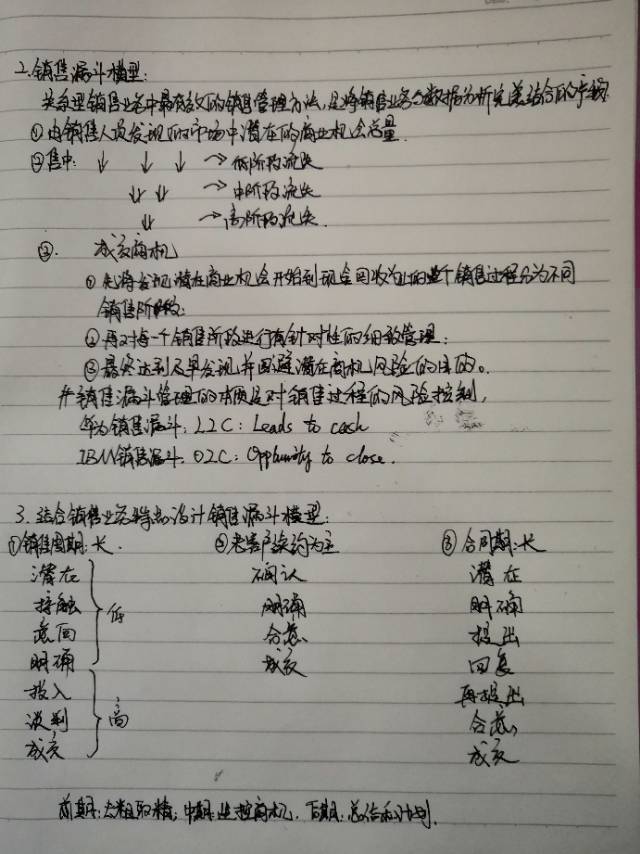 2.销售漏斗模型:
关系型销售业务中最有效的销售管理方法,是将销售业务与数据分析完美结合的产物
①由销售人员发现的市场中潜在的商业机会总量.
②售中: ↓ ↓ ↓ →低阶段流失
↓ ↓ →中阶段流失
↓ →高阶段流失.
③. 成交商机
①先将发现潜在商业机会开始到现金回收为止的整个销售过程分为不同
销售阶段;
②再对每一个销售阶段进行有针对性的细致管理;
③最终达到及早发现并回避潜在商机风险的目的。
#销售漏斗管理的本质是对销售过程的风险控制,
华为销售漏斗: L2C: Leads to cash
IBM销售漏斗. O2C: Opptunity to close.
3.结合销售业务特点设计销售漏斗模型:
①销售周期:长. ②老客户续约为主 ③合同期:长
潜在 确认 潜在
接触 低 明确 明确
意向 合意 提出
明确 成交 回复
投入 再提出
谈判 高 合意
成交 成交
前期:去粗取精; 中期:进 商机. 后期:总结和计划.